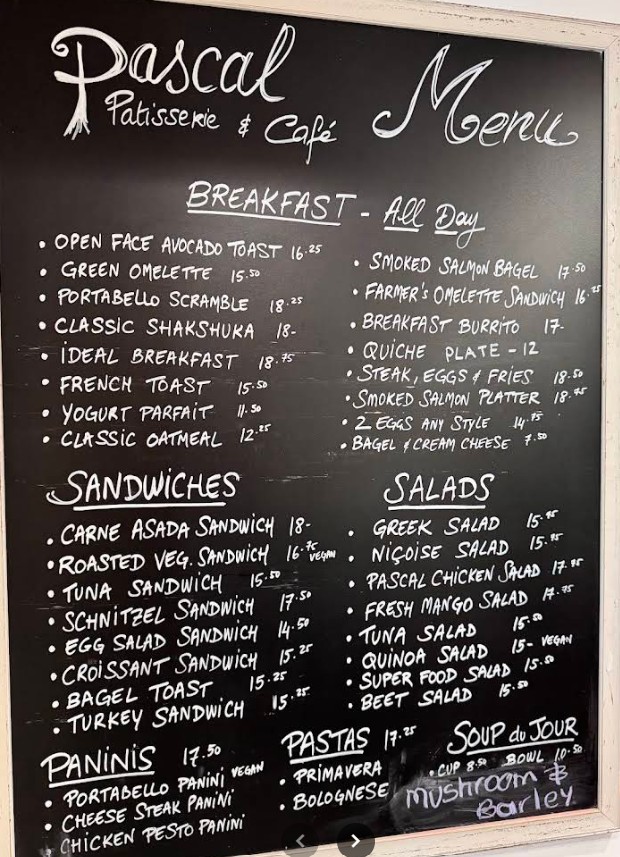 Pascal
Patisserie & Café
Menu
BREAKFAST - All Day
• OPEN FACE AVOCADO TOAST 16.25
• GREEN OMELETTE 15.50
• PORTABELLO SCRAMBLE 18.25
• CLASSIC SHAKSHUKA 18-
• IDEAL BREAKFAST 18.75
• FRENCH TOAST 15.50
• YOGURT PARFAIT 11.50
• CLASSIC OATMEAL 12.25
• SMOKED SALMON BAGEL 17.50
• FARMER'S OMELETTE SANDWICH
• BREAKFAST BURRITO 17-
• QUICHE PLATE - 12
• STEAK, EGGS & FRIES 18.50
• SMOKED SALMON PLATTER 18.75
• 2 EGGS ANY STYLE 14.75
• BAGEL & CREAM CHEESE 7.50
SANDWICHES
• CARNE ASADA SANDWICH 18-
• ROASTED VEG. SANDWICH 16.75 VEGAN
• TUNA SANDWICH 15.50
• SCHNITZEL SANDWICH 17.50
• EGG SALAD SANDWICH 14.50
• CROISSANT SANDWICH 15.25
• BAGEL TOAST 15.25
• TURKEY SANDWICH 15.25
SALADS
• GREEK SALAD 15.75
• NIÇOISE SALAD 15.75
• PASCAL CHICKEN SALAD 17.75
• FRESH MANGO SALAD 17.75
• TUNA SALAD 15.50
• QUINOA SALAD 15- VEGAN
• SUPER FOOD SALAD 15.50
• BEET SALAD 15.50
PANINIS 17.50
• PORTABELLO PANINI VEGAN
• CHEESE STEAK PANINI
• CHICKEN PESTO PANINI
PASTAS 17.25
• PRIMAVERA
• BOLOGNESE
SOUP du JOUR
• CUP 8.50 BOWL 10.50
Mushroom &
Barley